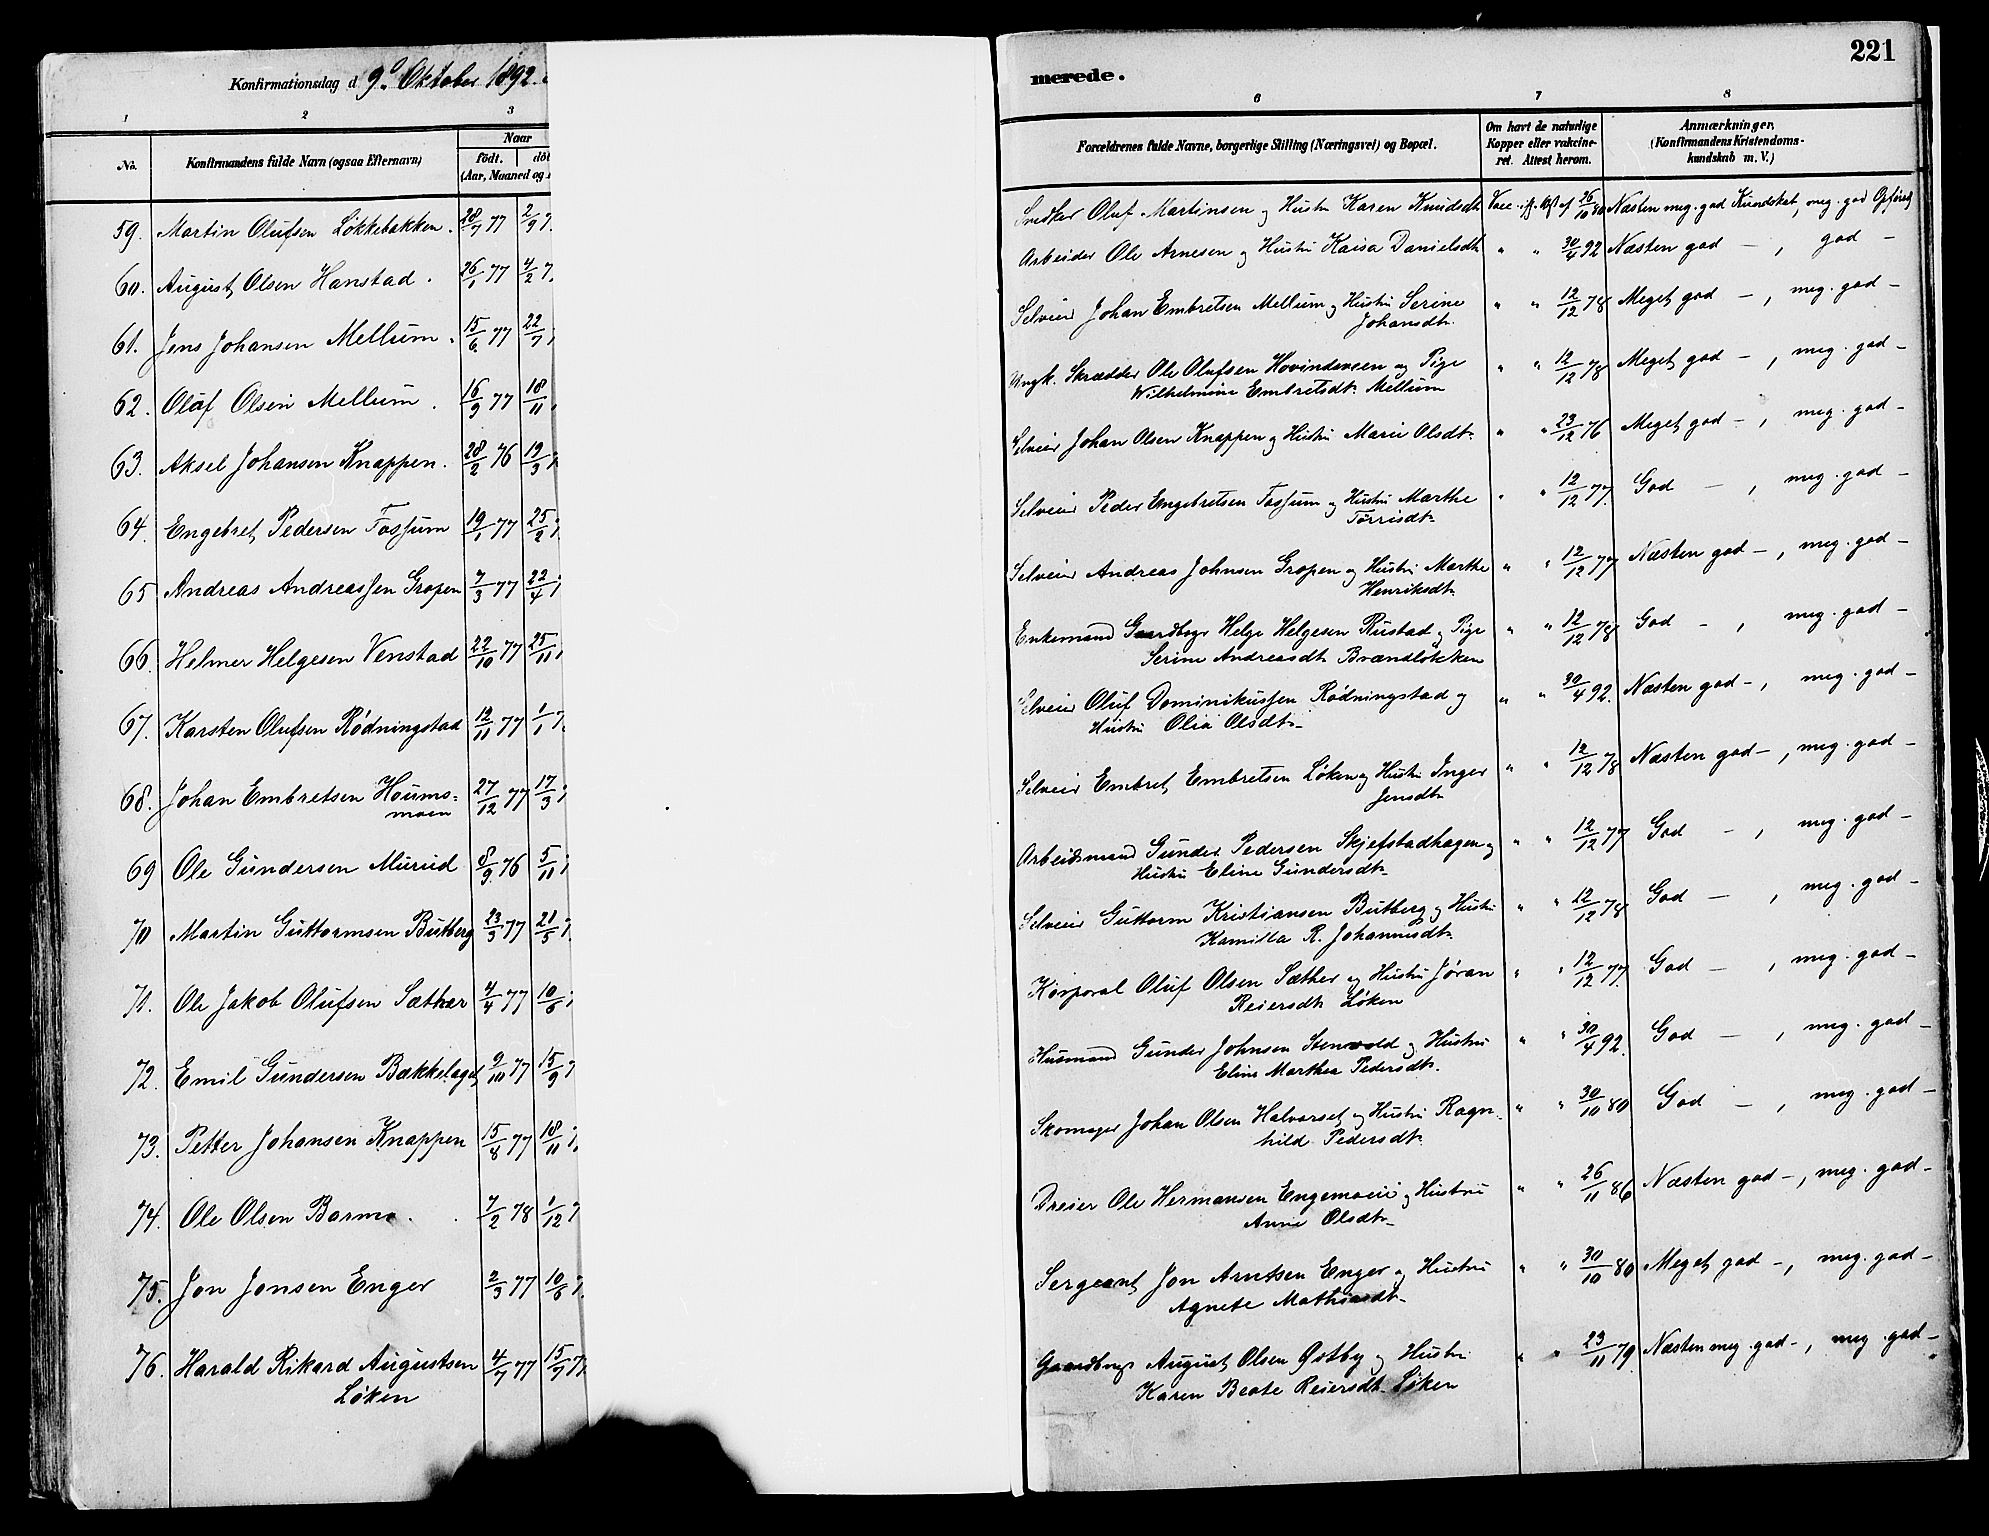 Konfirmationsdag d. 9d Oktober 1892.
1 2 3
No. Konfirmandens fulde Navn (ogsaa Efternavn) Naar
födt. dö
(Aar, Maaned og
59. Martin Olufsen Løkkebakken. 28/7 77 2/9 7
60. August Olsen Hanstad. 26/1 77 4/2 7
61. Jens Johansen Mellum. 15/6 77 22/7
62. Oluf Olsen Mellum. 16/9 77 18/11
63. Aksel Johansen Knappen. 28/2 76 19/3
64. Engebret Pedersen Fossum 19/1 77 25/2
65 Andreas Andreassen Gropen 7/3 77 22/4
66. Helmer Helgesen Venstad 22/10 77 25/11
67. Karsten Olufsen Rødningstad 12/11 77 1/1 7
68. Johan Embretsen Houms=
moen 27/12 77 17/3
69 Ole Gundersen Murud 8/9 76 5/11
70 Martin Guttormsen Butberg 23/3 77 21/5
71. Ole Jakob Olufsen Sæther 4/4 77 10/6
72. Emil Gundersen Bækkelaget 9/10 77 15/9 7
73. Petter Johansen Knappen 15/8 77 18/11
74. Ole Olsen Barmo. 7/2 78 1/12 7
75. Jon Jonsen Enger 2/3 77 10/6 7
76. Harald Rikard Augustsen
Løken 4/7 77 15/7 7
merede.
221
6 7 8
Forældrenes fulde Navne, borgerlige Stilling (Næringsvei) og Bopæl.
Om havt de naturlige
Kopper eller vakcine-
ret. Attest herom.
Anmærkninger.
(Konfirmandens Kristendoms-
kundskab m. V.)
Snedker Oluf Martinsen og Hustr Karen Knudsdtr Vacc. 26/10 80 Næsten meg. god Kundskab, meg. god Opførsel
Arbeider Ole Arnesen og Hustru Kaisa Danielsdtr " " 30/4 92 Næsten god —, god —
Selveier Johan Embretsen Mellum og Hustru Serine
Johansdtr. " " 12/12 78 Meget god —, meg. god —
Ungk. Skrædder Ole Olufsen Hovindsveen og Pige
Wilhelmine Embretsdtr. Mellum " " 12/12 78 Meget god —, meg. god —
Selveier Johan Olsen Knappen og Hustru Marie Olsdtr " " 23/12 76 Meget god —, meg. god —
Selveier Peder Engebretsen Fossum og Hustru Marthe
Torrisdtr " " 12/12 77. God —, meg. god —
Selveier Andreas Johnsen Gropen og Hustru Marthe
Henriksdtr. " " 12/12 77 Næsten god —, meg. god —
Enkemand Gaardbrgr Helge Helgesen Rustad og Pige
Serine Andreasdtr Brændløkken " " 12/12 78 God —, meg. god —
Selveier Oluf Dominikussen Rødningstad og
Hustru Olia Olsdtr " " 30/4 92. Næsten god —, meg. god —
Selveier Embret Embretsen Løken og Hustr Inger
Jensdtr " " 12/12 78 Næsten god —, meg. god —
Arbeidsmand Gunder Pedersen Skjefstadhagen og
Hustru Eline Gundersdtr " " 12/12 77 God —, meg. god —
Selveier Guttorm Kristiansen Butberg og Hustru
Kamilla R. Johannisdtr. " " 12/12 78 God —, meg. god —
Korporal Oluf Olsen Sæther og Hustru Jøran
Reiersdtr Løken " " 12/12 77. God —, meg. god —
Husmand Gunder Johnsen Stenvold og Hustru
Eline Marthea Pedersdtr. " " 30/4 92. God —, meg. god —
Skomager Johan Olsen Halvorset og Hustru Ragn-
hild Pedersdtr. " " 30/10 80 God —, meg. god —
Dreier Ole Hermansen Engemoen og Hustru
Anne Olsdtr " " 26/11 86 Næsten god —, meg. god —
Sergeant Jon Arntsen Enger og Hustru
Agnete Mathiasdtr " " 30/10 80 Meget god —, meg. god —
Gaardbrgr August Olsen Østby og Hustru
Karen Beate Reiersdtr Løken " " 23/11 79 Næsten meg. god —, meg. god —